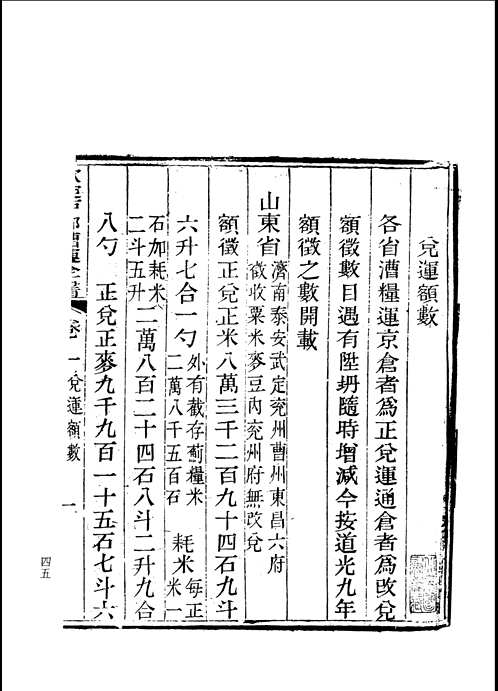 兌運額數
各省漕糧運京倉者爲正兌運通倉者爲改兌
額徵數目遇有陞坍隨時增減今按道光九年
額徵之數開載
山東省濟南泰安武定兖州曹州東昌六府
徵收粟米麥豆內兖州府無改兌
額徵正兌正米八萬三千二百九十四石九斗
六升七合一勺外有截存薊糧米
二萬八千五百石
耗米每正
米一
石加耗米
二斗五升
二萬八百二十四石八斗二升九合
八勺 正兌正麥九千九百一十五石七斗六
漕運全書
卷一 兌運額數 一
四五